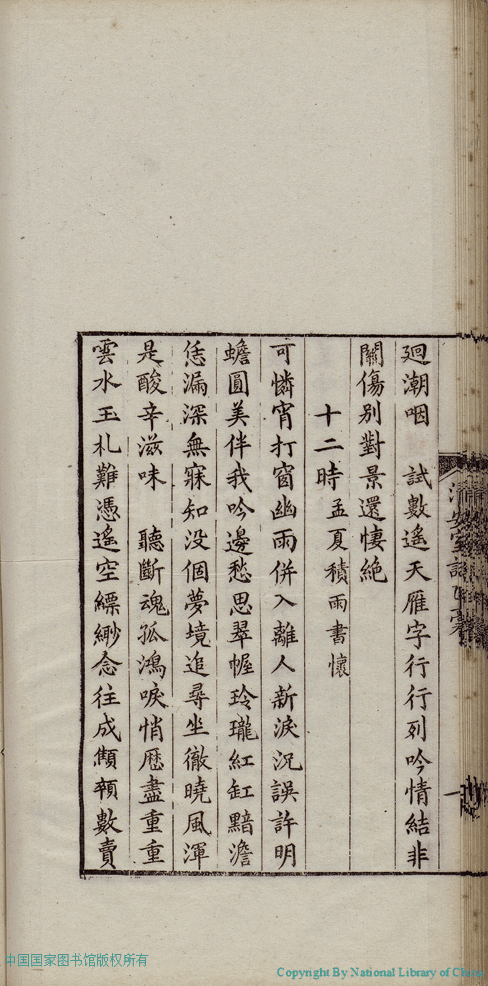 廻潮咽　試數遙天雁字行行列吟情結非
關傷別對景還悽絕
十二時孟夏積雨書懷
可憐宵打窗幽雨併入離人新淚況誤許明
蟾圓美伴我吟邊愁思翠幄玲瓏紅缸黯澹
恁漏深無寐知没個夢境追尋坐徹曉風渾
是酸辛滋味　聽斷魂孤鴻唳悄歷盡重重
雲水玉札難憑遙空縹緲念往成顦顇數賣
中国国家图书馆版权所有
Copyright By National Library of China